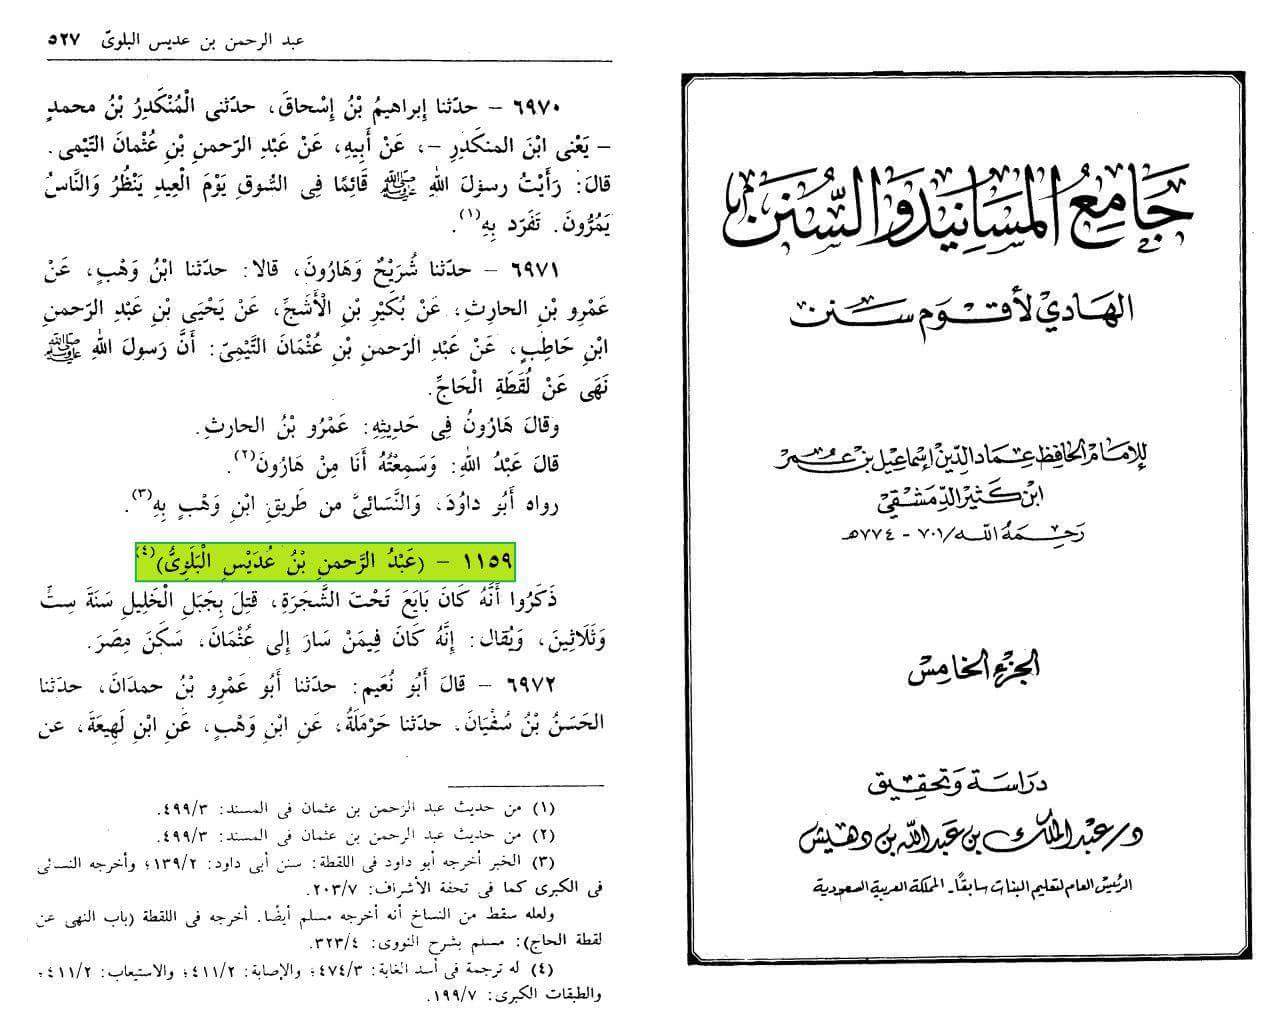 جَامِعُ المسَانِيْدِ وَالسُّنَن
الهَادِيْ لأَقْوَمِ سَنَن
للإمَام الحَافِظ عِمَاد الدِّيْن إسْمَاعيْل بن عُمَر
ابْن كَثيْر الدِّمَشْقِيْ
رَحِمَهُ اللّه / ٧٠١ - ٧٧٤ هـ
الجزء الخامس
دراسَة وَتحْقِيْق
د/ عَبْد الملك بن عَبد اللّه بن دهَيش
الرئيس العام لتعليم البنات سابقًا - المملكة العربية السعودية
عبد الرحمن بن عديس البلوىّ ٥٢٧
٦٩٧٠ - حدّثنا إبراهيمُ بْنُ إسْحاقَ، حدّثنى الْمُنْكَدِرُ بْنُ محمدٍ
- يَعْنى ابْنَ المنكَدِرِ -، عَنْ أَبِيهِ، عَنْ عَبْدِ الرّحمنِ بْنِ عُثْمانَ التّيْمى.
قالَ: رَأَيْتُ رسولَ اللهِ ﷺ قَائِمًا فِى السُّوقِ يَوْمَ العِيدِ يَنْظُرُ وَالنَّاسُ
يَمُرُّونَ. تَفَرّد بِهِ(١).
٦٩٧١ - حدّثنا سُرَيْجٌ وَهَارُونَ، قالا: حدّثنا ابْنُ وَهْبٍ، عَنْ
عَمْرِو بْنِ الحارِثِ، عَنْ بُكَيْرِ بْنِ الْأَشَجِّ، عَنْ يَحْيَى بْنِ عَبْدِ الرّحمنِ
ابْنِ حَاطِبٍ، عَنْ عَبْدِ الرّحمنِ بْنِ عُثْمَانَ التَّيْمِىّ: أَنَّ رَسولَ اللهِ ﷺ
نَهَى عَنْ لُقَطَةِ الْحَاجِّ.
وَقالَ هَارُونُ فِى حَدِيثِهِ: عَمْرُو بْنُ الحارثِ.
قالَ عَبْدُ اللهِ: وَسَمِعْتُهُ أَنَا مِنْ هَارُونَ(٢).
رواه أَبُو داوُدَ، وَالنَّسَائِىُّ من طَرِيقِ ابْنِ وَهْبٍ بِهِ(٣).
١١٥٩ - (عَبْدُ الرَّحمنِ بْنُ عُدَيْسٍ الْبَلَوِىُّ)(٤)
ذَكَرُوا أَنَّهُ كَانَ بَايَعَ تَحْتَ الشَّجَرَةِ، قتِلَ بِجَبَلِ الْخَلِيلِ سَنَةَ سِتٍّ
وَثَلَاثِينَ، وَيُقال: إنَّهُ كَانَ فِيمَنْ سَارَ إلى عُثْمَانَ، سَكَنَ مِصْرَ.
٦٩٧٢ - قالَ أَبُو نُعَيم: حدّثنا أَبُو عَمْرِو بْنُ حمدَانَ، حدّثنا
الحَسَنُ بْنُ سُفْيَانَ. حدّثنا حَرْمَلَةُ، عَنِ ابْنِ وَهْبٍ، عَنِ ابْنِ لَهِيعَةَ، عن
(١) من حديث عبد الرحمن بن عثمان فى المسند: ٤٩٩/٣.
(٢) من حديث عبد الرحمن بن عثمان فى المسند: ٤٩٩/٣.
(٣) الخبر أخرجه أبو داود فى اللقطة: سنن أبى داود: ١٣٩/٢؛ وأخرجه النسائى
فى الكبرى كما فى تحفة الأشراف: ٢٠٣/٧.
ولعله سقط من النساخ أنه أخرجه مسلم أيضًا. أخرجه فى اللقطة (باب النهى عن
لقطة الحاج): مسلم بشرح النووى: ٣٢٣/٤.
(٤) له ترجمة فى أسد الغابة: ٤٧٤/٣؛ والإصابة: ٤١١/٢؛ والاستيعاب: ٤١١/٢؛
والطبقات الكبرى: ١٩٩/٧.